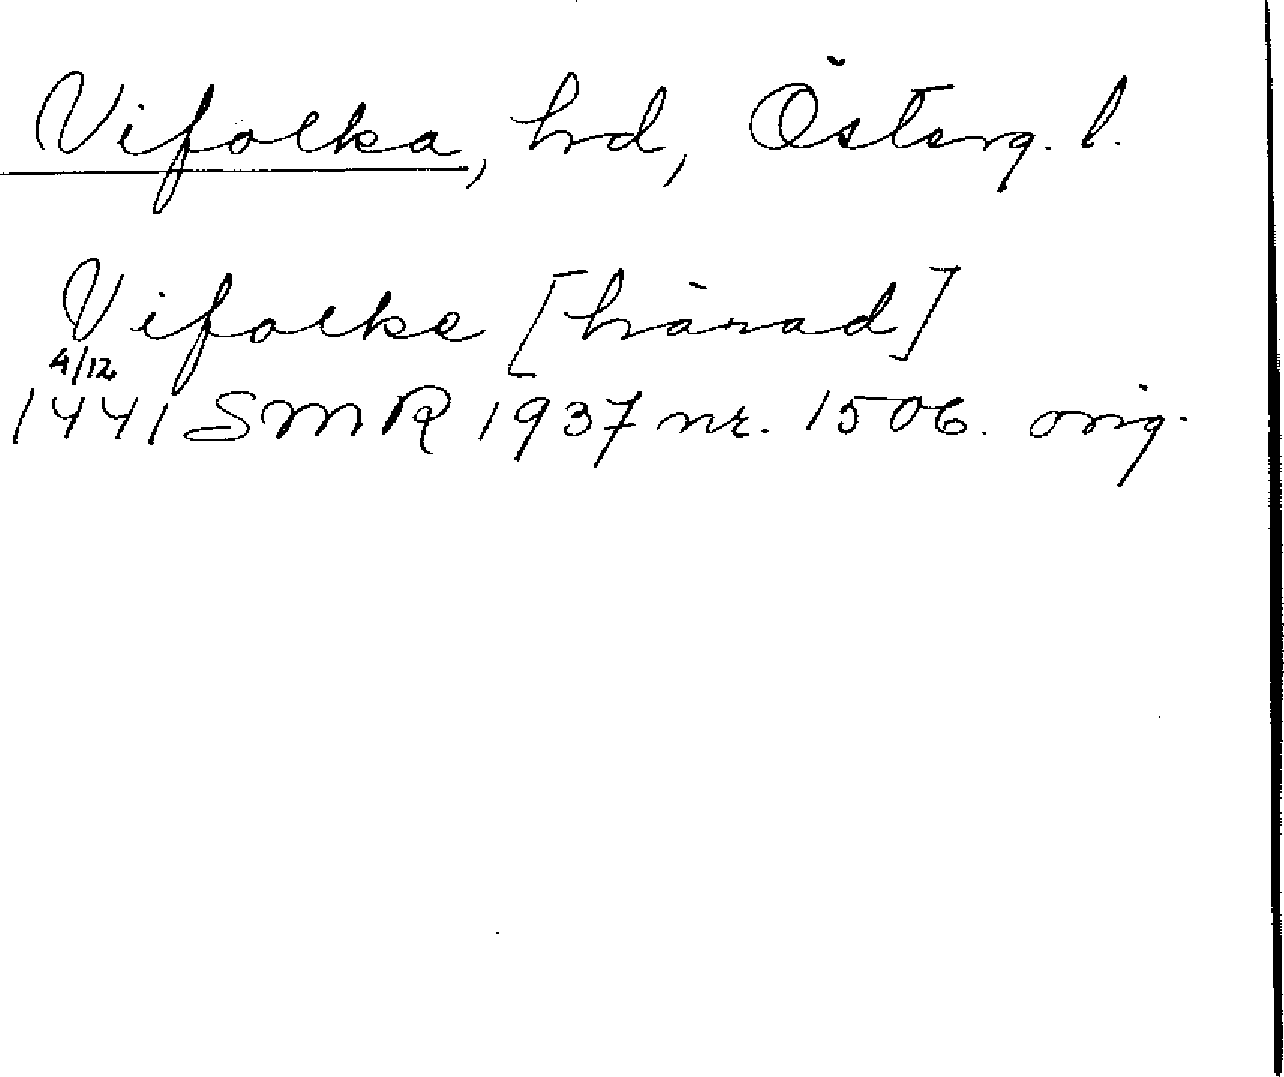 Vifolka, hd, Österg. l.
Vifolke [härad]
4/12
1441 SMR 1937 nr. 1506. orig.